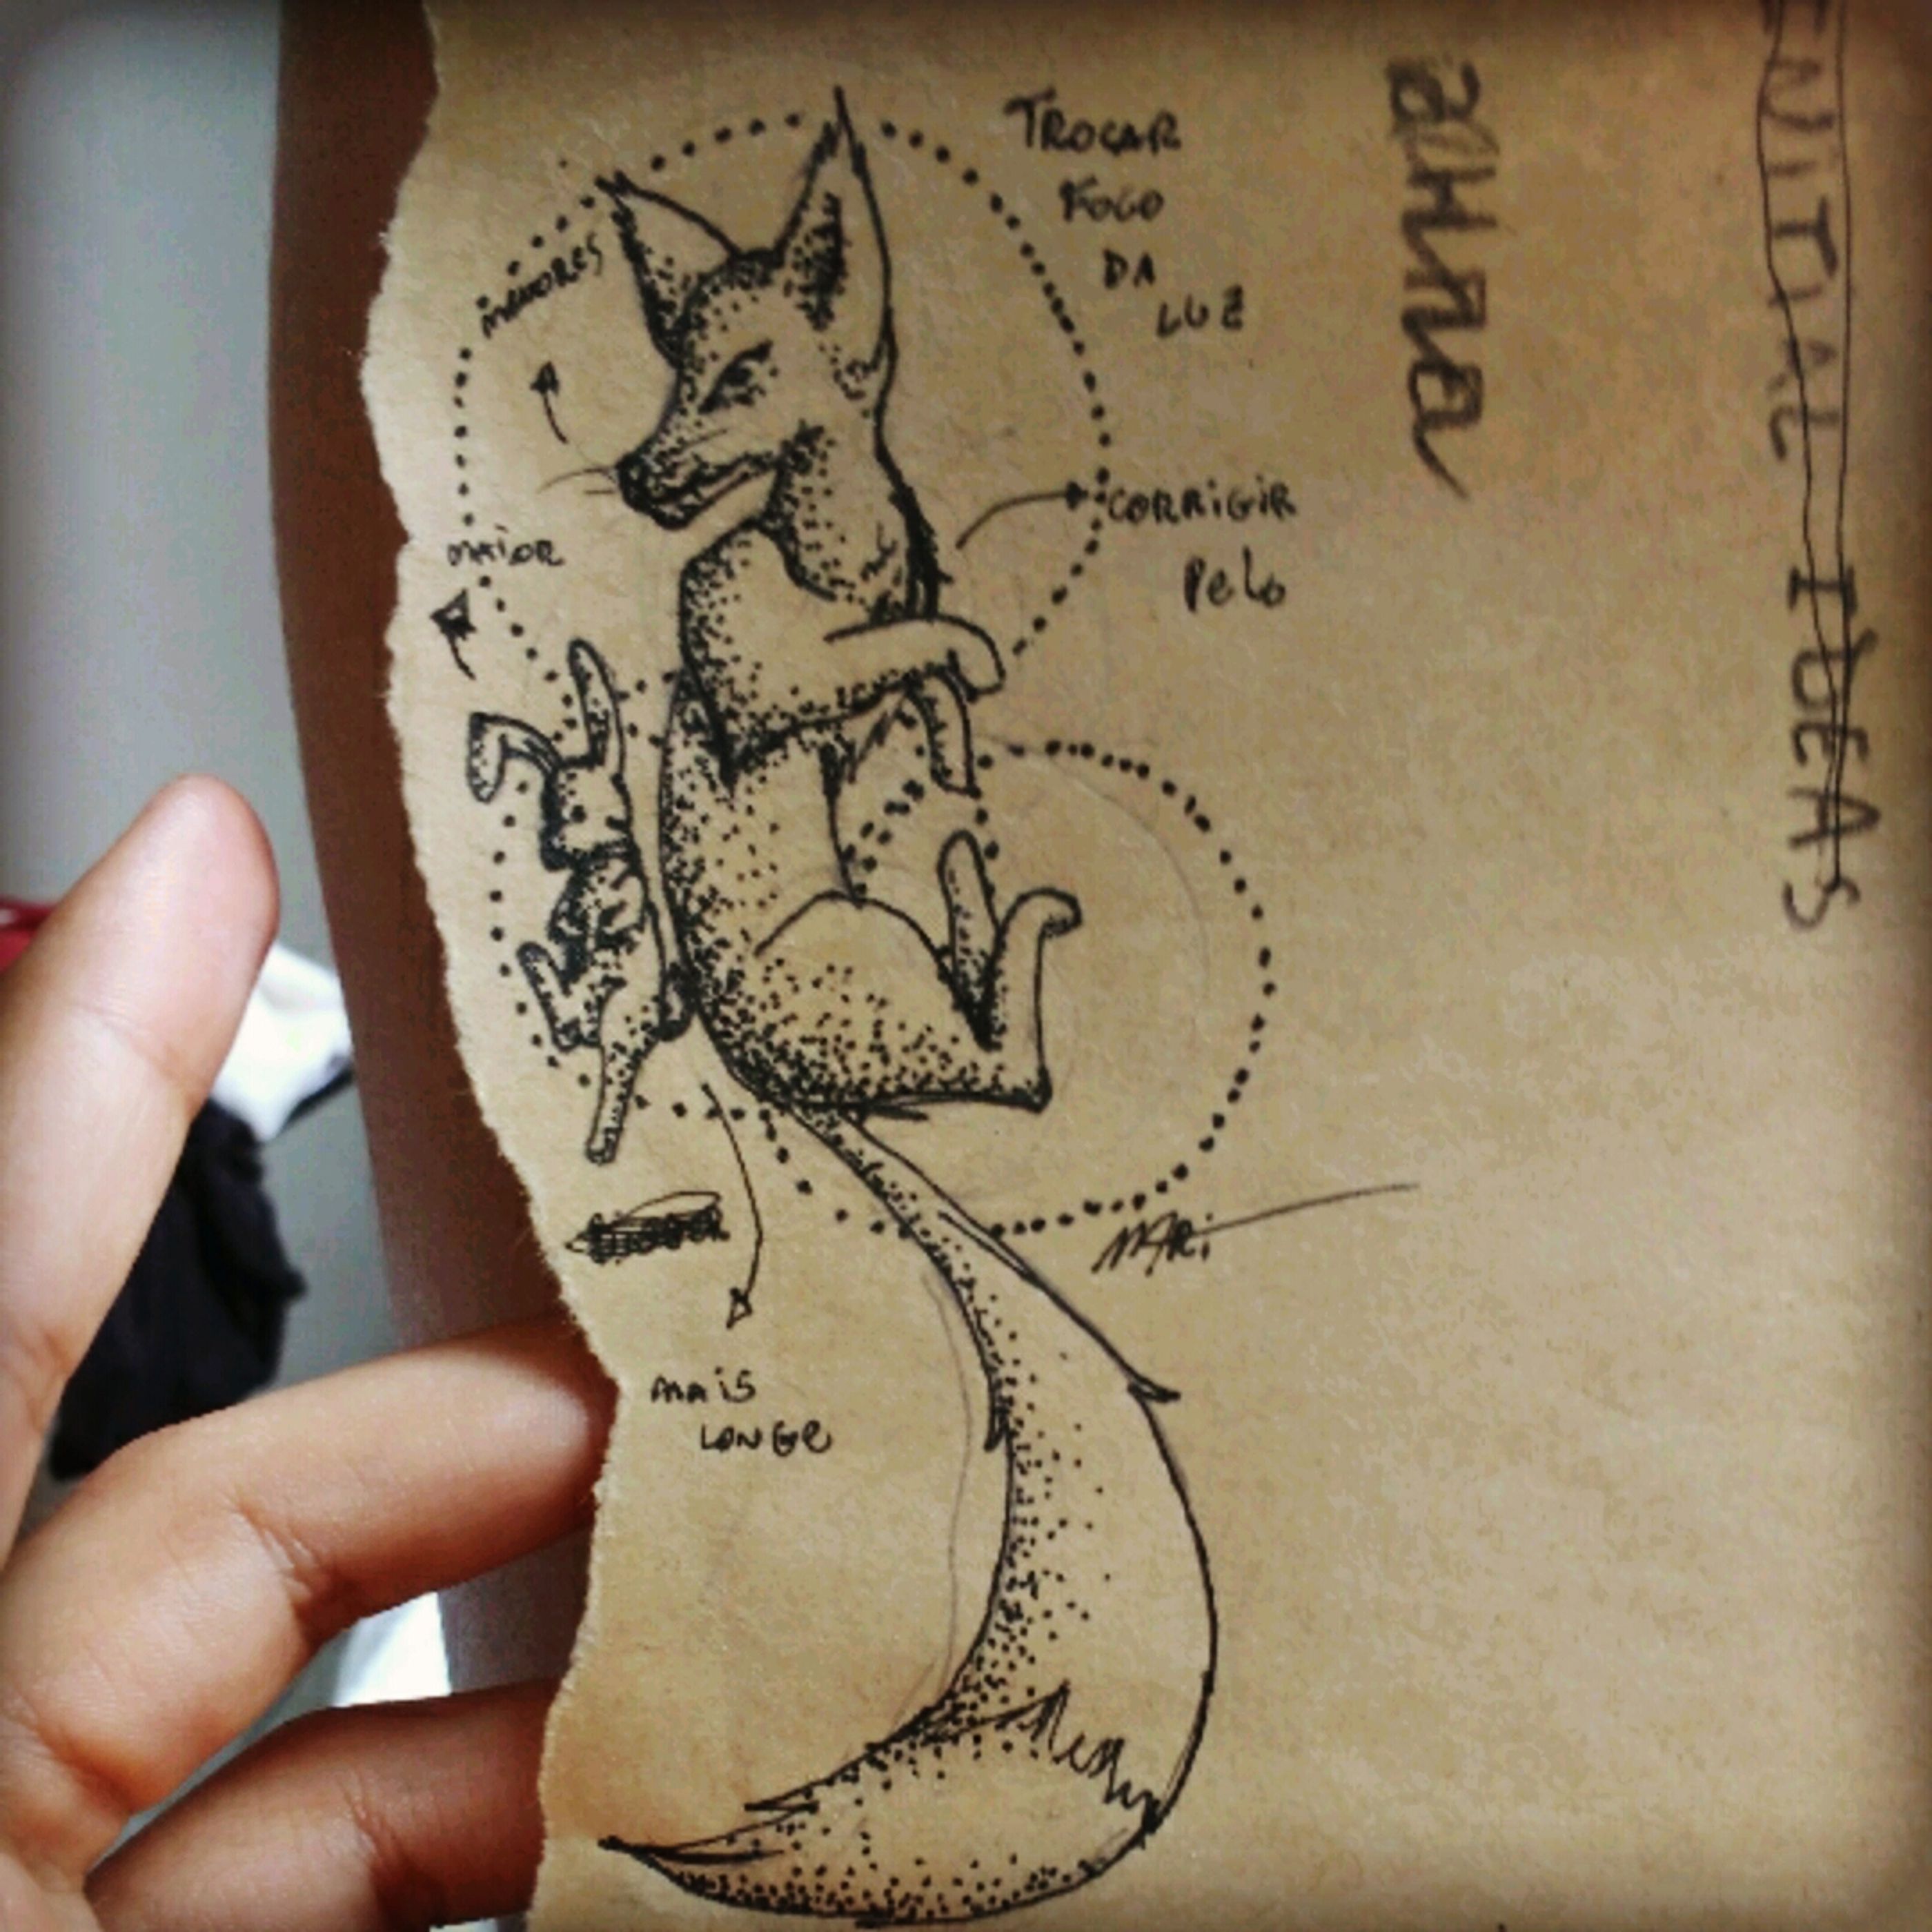 TROCAR
FOCO
DA
LUZ
MENORES
MAIOR
CORRIGIR
PELO
MARI
MAIS
LONGE
INITIAL IDEAS